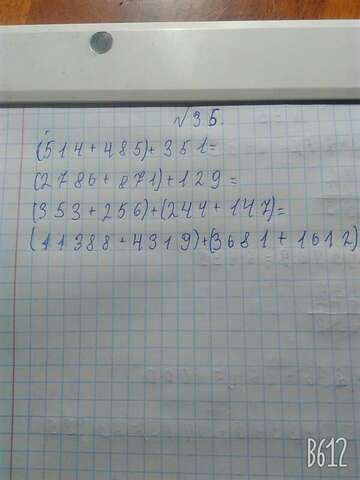 №35.
(514+485)+351=
(2786+871)+129=
(353+256)+(244+147)=
(11388+4319)+(3681+1612)
B612